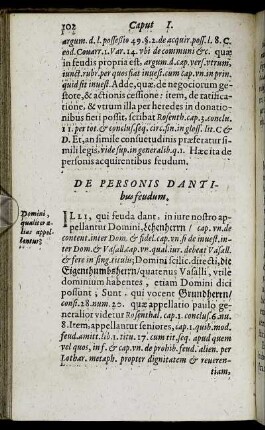 102 Caput I.
argum. d. l. possessio 49. §. 2. de acquir. poss. l. 8. C.
eod. Couarr. 1. Var. 14. vbi de communi &c. quæ
in feudis propria est. argum. d. cap. vers. vtrum.
iunct. rubr. per quos fiat inuest. cum cap. vn. in prin.
quid sit inuest. Adde, quæ. de negociorum ge-
store, & actionis cessione: item, de ratifica-
tióne, & vtrum illa per heredes in donatio-
nibus fieri possit, scribat Rosenth. cap. 3. conclu.
11. per tot. & conclus. seq. circ. fin. in gloss. lit. C &
D. Et, an simile consuetudinis præferatur si-
mili legis. vide sup. in generalib. q. 1. Hæc ita de
personis acquirentibus feudum.
DE PERSONIS DANTI-
bus feudum.
Domini,
quales a-
lias appel-
lentur?
ILLI, qui feuda dant, in iure nostro ap-
pellantur Domini, Lehenherrn / cap. vn. de
content. inter Dom. & fidel. cap. vn. si de inuest. in-
ter Dom. & Vasall. cap. vn. qual. iur. debeat Vasall.
& fere in toto titulo; Domini scilic. directi, die
Eigenthumbsherrn / quatenus Vasalli, vtile
dominium habentes, etiam Domini dici
possunt, Sunt qui vocent Grundherrn /
consi. 28. num. 20. quæ appellatio paulo ge-
neralior videtur Rosenthal. cap. 1. conclus. 6. nu.
8. Item, appellantur seniores, cap. 1. quib. mod.
feud. amit. lib. 1. titu. 17. cum rit. seq. apud quem
vel quos, in f. & cap. vn. de prohib. feud. alien. per
Lothar. metaph. propter dignitatem & reueren-
tiam,